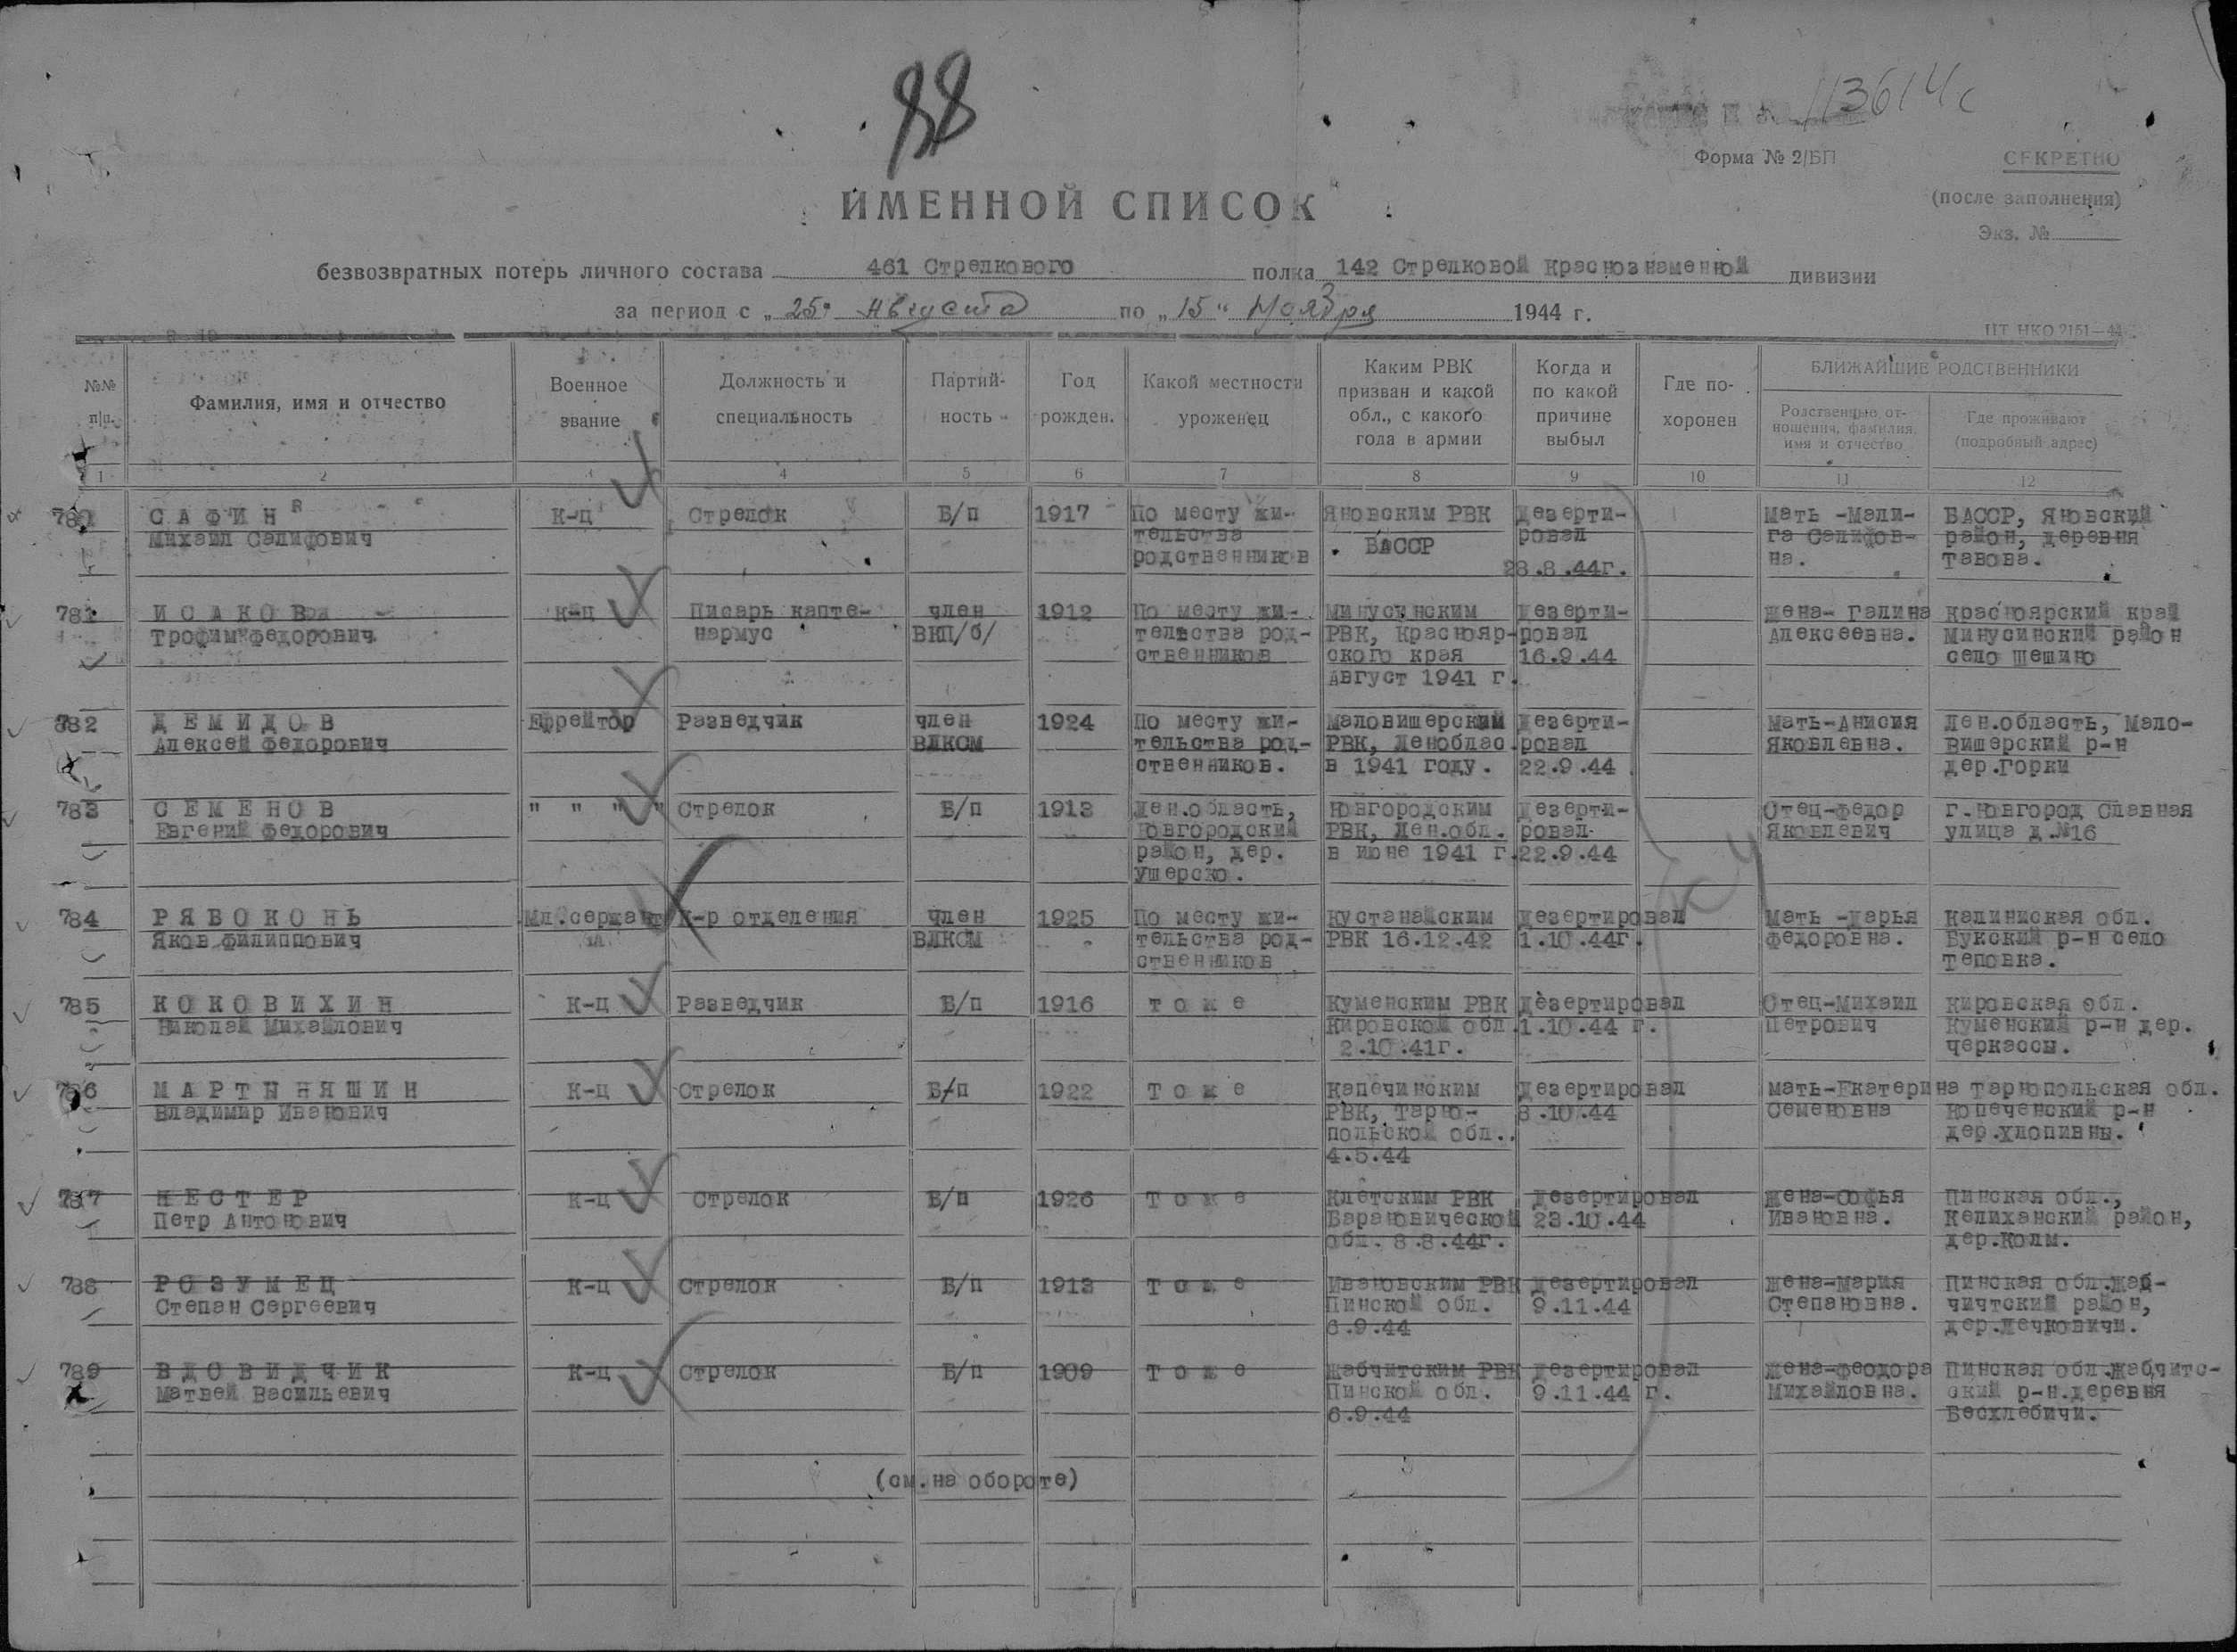 88
113614с
Форма № 2/БП
СЕКРЕТНО
(после заполнения)
Экз. №
ИМЕННОЙ СПИСОК
безвозвратных потерь личного состава 461 Стрелкового полка 142 Стрелковой Краснознаменной дивизии
за период с „25" Августа по „15" Ноября 1944 г.
ЦТ НКО 2151—44
№№ п|п.
Фамилия, имя и отчество
Военное звание
Должность и специальность
Партий-ность
Год рожден.
Какой местности уроженец
Каким РВК призван и какой обл., с какого года в армии
Когда и по какой причине выбыл
Где по-хоронен
БЛИЖАЙШИЕ РОДСТВЕННИКИ
Родственные от-ношения, фамилия, имя и отчество
Где проживают (подробный адрес)
1 2 3 4 5 6 7 8 9 10 11 12
САФИН К-ц Стрелок Б/п 1917 По месту жи- Яновским РВК Дезерти- Мать -Мали- БАССР, Яновский
Михаил Салифович тельства БАССР ровал га Салифов- район, деревня
родственников 28.8.44г. на. Тавова.
781 ИСАКОВ К-ц Писарь капте- член 1912 По месту жи- Минусинским Дезерти- Жена- Галина Красноярский край
Трофим Федорович нармус ВКП/б/ тельства род- РВК, Краснояр- ровал Алексеевна. Минусинский район
ственников ского края 16.9.44 село Шешино
Август 1941 г.
782 ДЕМИДОВ Ефрейтор Разведчик член 1924 По месту жи- Маловишерским Дезерти- Мать-Анисия Лен.область, Мало-
Алексей Федорович ВЛКСМ тельства род- РВК, Леноблас. ровал Яковлевна. вишерский р-н
ственников. в 1941 году. 22.9.44 дер.Горки
783 СЕМЕНОВ " " " " Стрелок Б/п 1913 Лен.область, Новгородским Дезерти- Отец-Федор г.Новгород Славная
Евгений Федорович Новгородский РВК, Лен.обл. ровал Яковлевич улица д.№16
район, дер. в июне 1941 г. 22.9.44
Ушерско.
784 РЯБОКОНЬ Мл.сержант К-р отделения член 1925 По месту жи- Кустанайским Дезертировал Мать -Дарья Калиниская обл.
Яков Филиппович ВЛКСМ тельства род- РВК 16.12.42 1.10.44г. Федоровна. Букский р-н село
ственников Теповка.
785 КОКОВИХИН К-ц Разведчик Б/п 1916 тоже Куменским РВК Дезертировал Отец-Михаил Кировская обл.
Николай Михайлович Кировской обл. 1.10.44 г. Петрович Куменский р-н дер.
2.10.41г. Черкассы.
786 МАРТЫНЯШИН К-ц Стрелок Б/п 1922 Тоже Капечинским Дезертировал Мать-Екатерина Тарнопольская обл.
Владимир Иванович РВК, Тарно- 8.10.44 Семеновна Копеченский р-н
польской обл. дер.Хлопивны.
4.5.44
787 НЕСТЕР К-ц Стрелок Б/п 1926 Тоже Клетским РВК Дезертировал Жена-Софья Пинская обл.,
Петр Антонович Барановической 23.10.44 Ивановна. Келиханский район,
обл. 8.8.44г. дер.Колм.
788 РОЗУМЕЦ К-ц Стрелок Б/п 1913 Тоже Ивановским РВК Дезертировал Жена-Мария Пинская обл.Жаб-
Степан Сергеевич Пинской обл. 9.11.44 Степановна. чичтский район,
6.9.44 дер.Лечковичи.
789 ВДОВИДЧИК К-ц Стрелок Б/п 1909 Тоже Жабчитским РВК Дезертировал Жена-Феодора Пинская обл.Жабчитс-
Матвей Васильевич Пинской обл. 9.11.44 г. Михайловна. ский р-н.деревня
6.9.44 Бесхлебичи.
(см.на обороте)